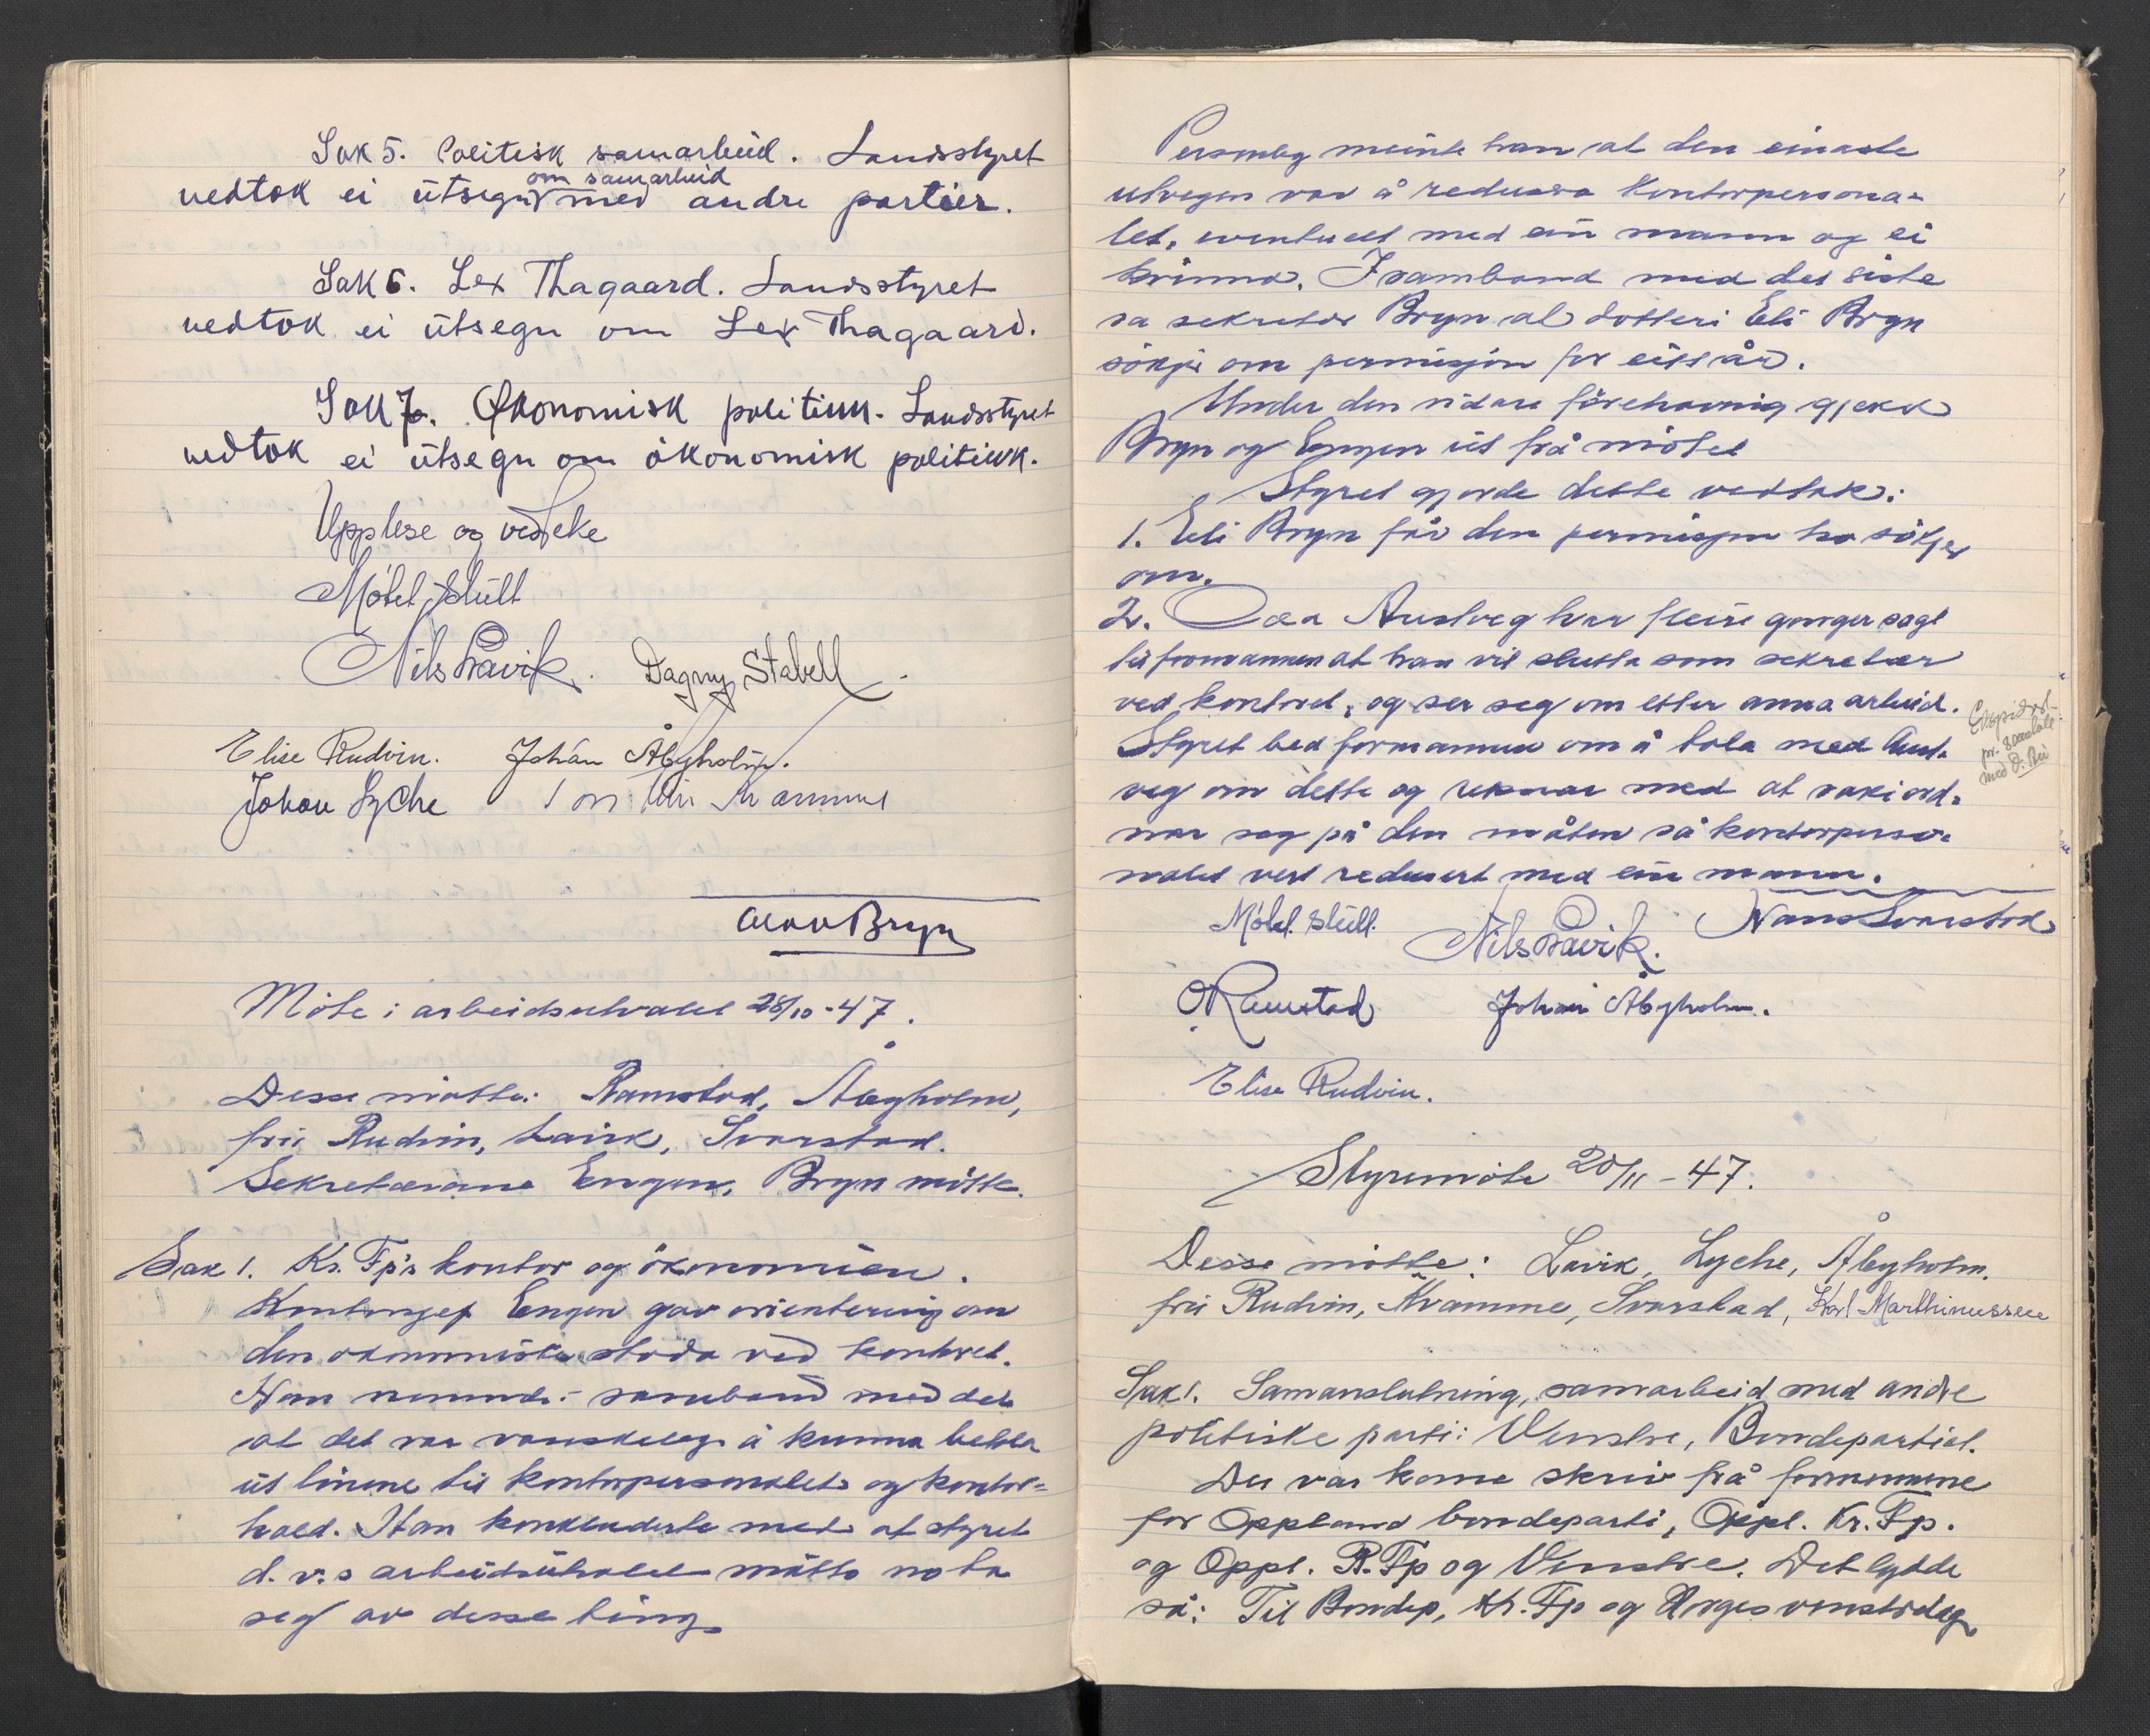 Sak 5. Politisk samarbeid. Landsstyret
om samarbeid
vedtok ei útsegn med andre partier.
Sak 6. Lex Thagaard. Landsstyret
vedtok ei útsegn om Lex Thagaard.
Sak 7. Økonomisk politikk. Landsstyret
vedtok ei útsegn om ökonomisk politikk.
Upplese og vedteke
Mötet slutt
Nils Lavik. Dagny Stabell.
Elise Rudvin. Johan Åbyholm.
Johan Lyche Kvamme
Olav Bryn
Möte i arbeidsutvalet 28/10-47.
Desse mötte: Ramstad, Åbyholm,
frú Rudvin, Lavik, Svarstad.
Sekretærane Engen, Bryn mötte.
Sak 1. Kr. Fp's kontor og ökonomien.
Kontorsjef Engen gav orientering om
den ökonomiske stoda ved kontoret.
Han nemnde i samband med det
at det var vanskeleg å kunna betala
út lönene til kontorpersonalet og kontor-
hald. Han konkluderte med at styret
d.v.s arbeidsútvalet måtte no ta
seg av desse ting.
Personleg meinte han at den einaste
utvegen var å redusera kontorpersona-
let, eventuelt med ein mann og ei
kvinna. I samband med det siste
sa sekretær Bryn at dotteri Eli Bryn
sökjer om permisjon for eitt år.
Under den vidare fórehavnig gjekk
Bryn og Engen út frå mötet
Styret gjorde dette vedtak:
1. Eli Bryn får den permisjon ho sökjer
om.
2. Austveg har fleire gonger sagt
til formannen at han vil slutta som sekretær
ved kontoret, og ser seg om etter anna arbeid.
Styret bed formannen om å tala med Aust-
veg om dette og reknar med at saki ord-
nar seg på den måten så kontorperso-
nalet vert redusert med ein mann.
Eksped.
pr. samtale
med D. Bú
Mötet slutt. Nils Lavik. Hans Svarstad
O Ramstad Johan Åbyholm.
Elise Rudvin.
Styremöte 20/11-47.
Desse mötte: Lavik, Lyche, Åbyholm.
frú Rudvin, Kvamme, Svarstad, Karl Marthinussen
Sak 1. Samanslutning, samarbeid med andre
politiske parti: Venstre, Bondepartiet.
Der var kome skriv frå formennene
for Oppland bondeparti, Oppl. Kr. Fp.
og Oppl. R. Fp og Venstre. Det lydde
så: Til Bondep, Kr. Fp og Norges venstrelag